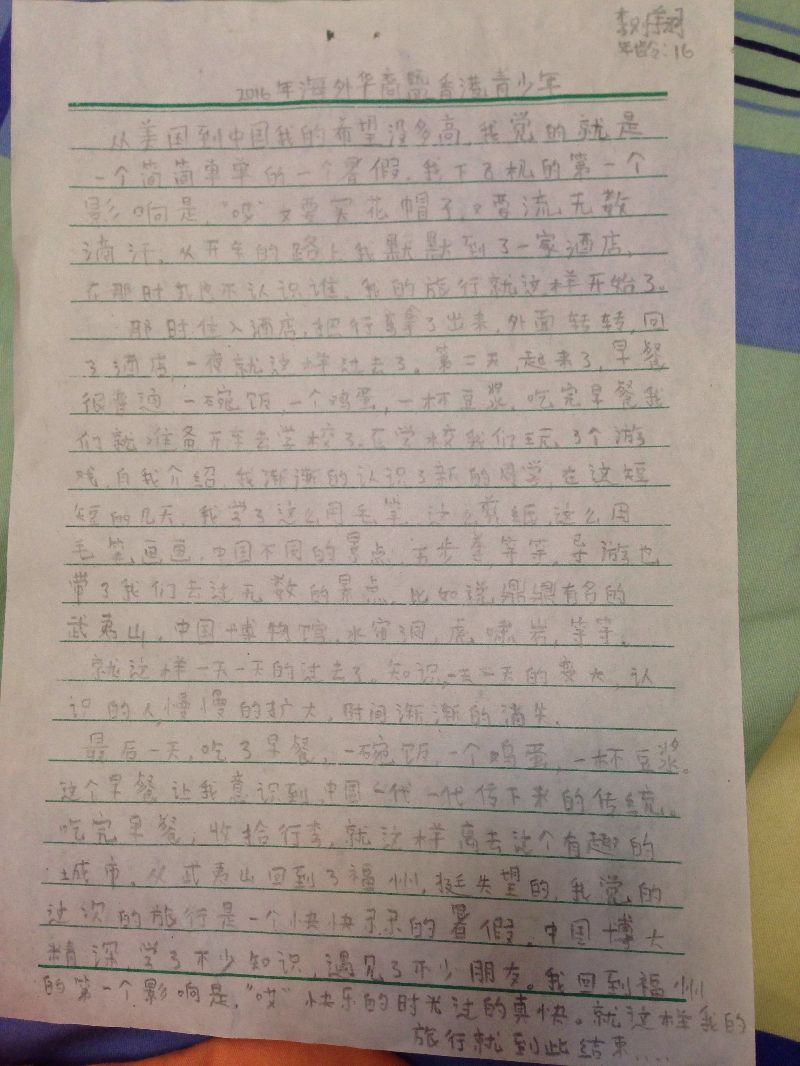 李
年龄:16
2016年海外华裔暨香港青少年
从美国到中国我的希望没多高,我觉的就是
一个简简单单的一个暑假,我下了机的第一个
影响是,"哎"又要买花帽子,又要流无数
滴汗。从开车的路上我默默到了一家酒店,
在那时我也不认识谁,我的旅行就这样开始了。
那时住入酒店,把行李拿了出来,外面转转,回
了酒店,一夜就这样过去了。第二天,起来了,早餐
很普通 一碗饭,一个鸡蛋,一杯豆浆。吃完早餐我
们就准备开车去学校了。在学校我们玩了个游
戏,自我介绍,我渐渐的认识了新的同学,在这短
短的几天,我学了这么用毛笔,这么剪纸,这么用
毛笔画画,中国不同的景点,五步拳,等等。导游也
带了我们去过无数的景点,比如说,鼎鼎有名的
武夷山,中国博物馆,水帘洞,虎啸岩,等等。
就这样一天一天的过去了,知识,一天一天的变大,认
识的人慢慢的扩大,时间渐渐的消失.
最后一天,吃了早餐,一碗饭,一个鸡蛋,一杯豆浆。
这个早餐让我意识到中国一代一代传下来的传统。
吃完早餐,收拾行李,就这样离去这个有趣的
城市。从武夷山回到了福州,挺失望的,我觉的
这次的旅行是一个快快乐乐的暑假。中国博大
精深,学了不少知识,遇见了不少朋友。我回到福州
的第一个影响是,"哎"快乐的时光过的真快。就这样我的
旅行就到此结束....